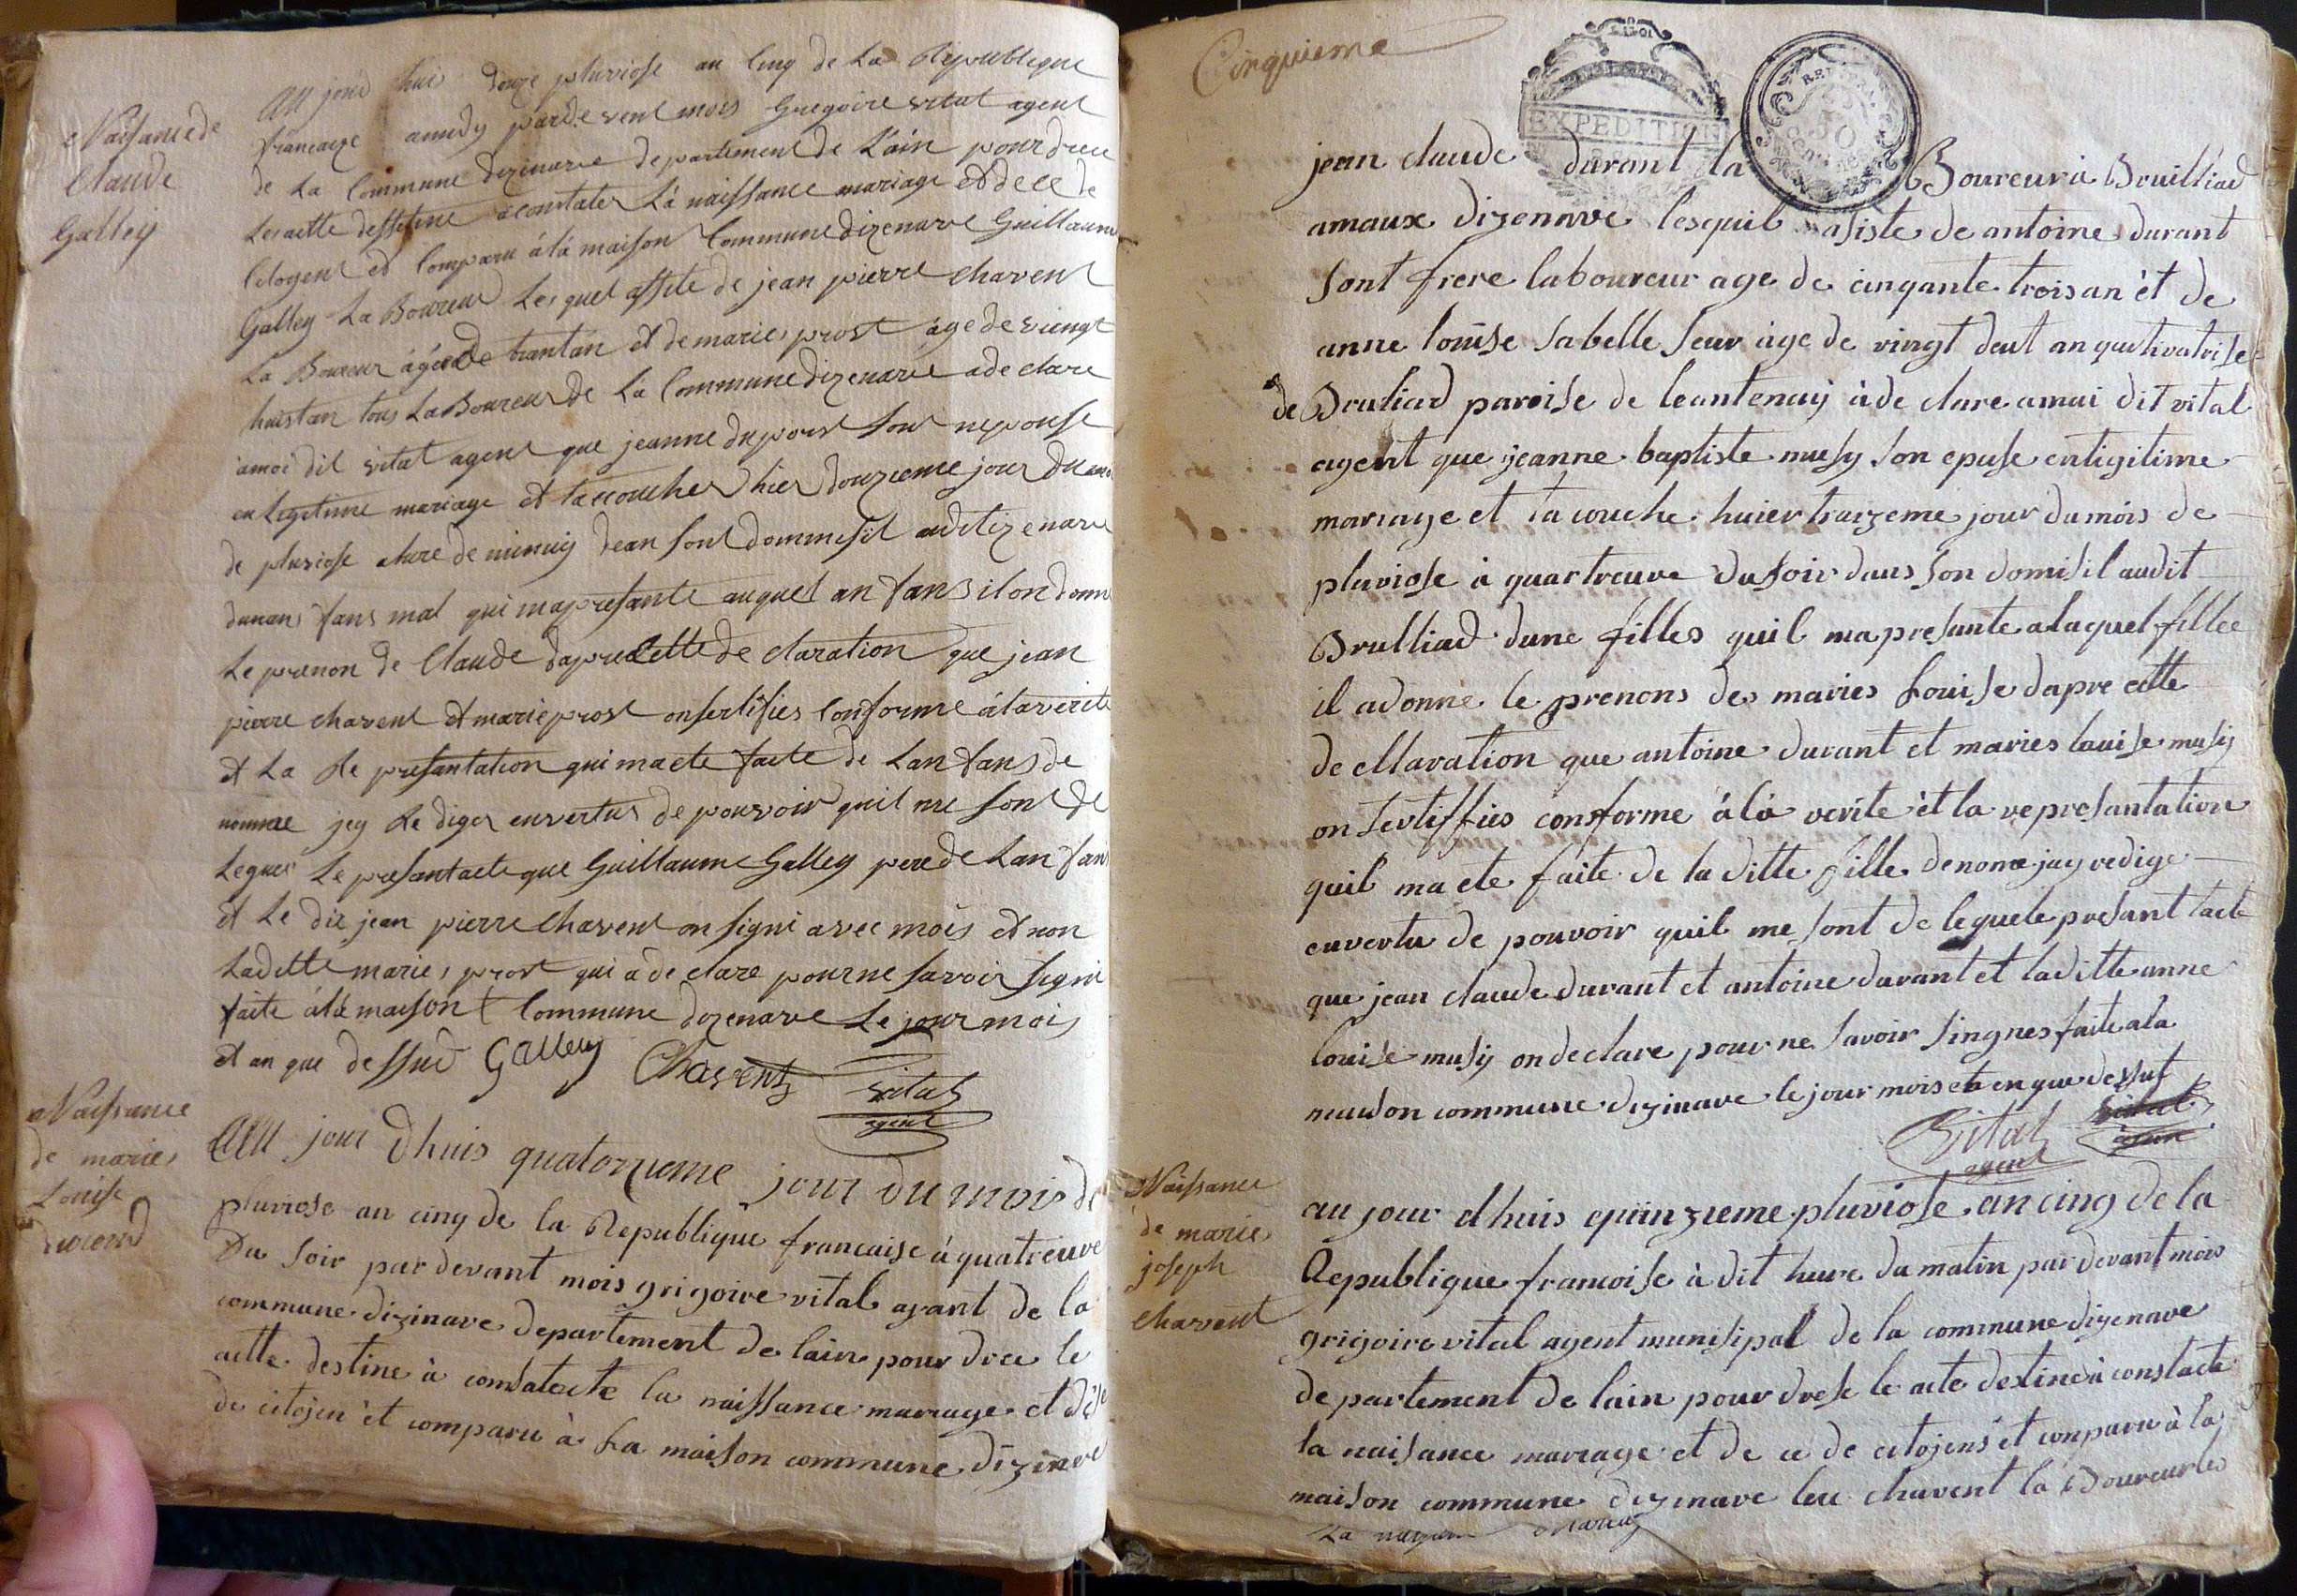 Naissance de
Claude
Galley
Au jourd huis douze pluviose an cinq de La Republique
francaize amidy pardevent mois Gregoire vital agent
de La Commune dizenave departement de Lain pour drece
Les actte desstine a constater La naissance mariage et dece de
Citogent et Comparu à là maison Commune dizenave Guillaume
Galley La Boureur Les quel assite de jean pierre chavent
La Boureur àgée de trantan et de maries prost àge de viengt
huistan tous La Boureur de La Commune dizenave a de clare
amoi dit vital agent que jeanne dupont son nepouse
en Legetime mariage et taccouchee hier douzieme jour du mois
de pluviose a hure de minuiy dean sont dommesil audit izenave
dunans fans mal qui mapresante auquel an fans il on donne
Le prenon de Claude dapre Cette de claration que jean
pierre chavent et marie prost on sertifies Conforme à la verite
et La Re presantation qui ma ete faite de Lan fans de
nommee jey Re diger en vertus de pouvoir quil me sont de
Legues Le presant acte que Guillaume Galley pere de Lan fans
et Le dit jean pierre Chavent on signi avec mois et non
Laditte maries prost qui à de clare pour ne savoir signi
faite à là maison Commune dizenave Le jour mois
et an que dessus Galley Chavent vital
agent
Naissance
de maries
Louise
durand
Au jour d'huis quatorzieme jour du mois de
pluviose an cinq de la Republique francaise à quatreuve
Du soir par devant mois grigoire vital agant de la
commune dizinave departement de lain pour drece le
actte destine à constatecte la naissance mariage et dése
de citojen èt comparu à La maison commune dizinave
Cinquieme
EXPEDITION
jean claude durant la Boureur à Bruilliad
amaux dizennave lesquil asiste de antoine durant
sont frere laboureur age de cinqante trois an èt de
anne louise sa belle seur àge de vingt deut an quetivatrise
de Bruliad paroise de leantenay à de clare amai dit vital
agent que jeanne baptiste musy son epuse entigitime
mariage et ta couche huier traizeme jour du mois de
pluviose à quartreuve du soir dans son domisil audit
Brulliad dune filles quil ma presante alaquel fillee
il adonne le prenons des maries Louise dapre cette
de cllaration que antoine durant et maries lauise musy
on sertiffies consforme à là verite èt la represantation
quil ma ete faite de la ditte fille denome jay redige
envertu de pouvoir quil me sont de leguele presant tacte
que jean claude durant et antoine durant et laditte anne
louise musy on declare pour ne savoir singnes faite ala
maison commune dizinave le jour mois et en que dessus
vital vital
agent agent
Naissance
de maries
joseph
chavent
au jour d'huis quinzieme pluviose an cinq de la
Republique francoise à dit hure du matin par devant mois
grigoire vital agent munisipal de la commune dizenave
departement de lain pour drese le acte destine à constacte
la naisance mariage et de ce de citojens èt conparu à la
maison commune dizinave leu chavent la Boureur les